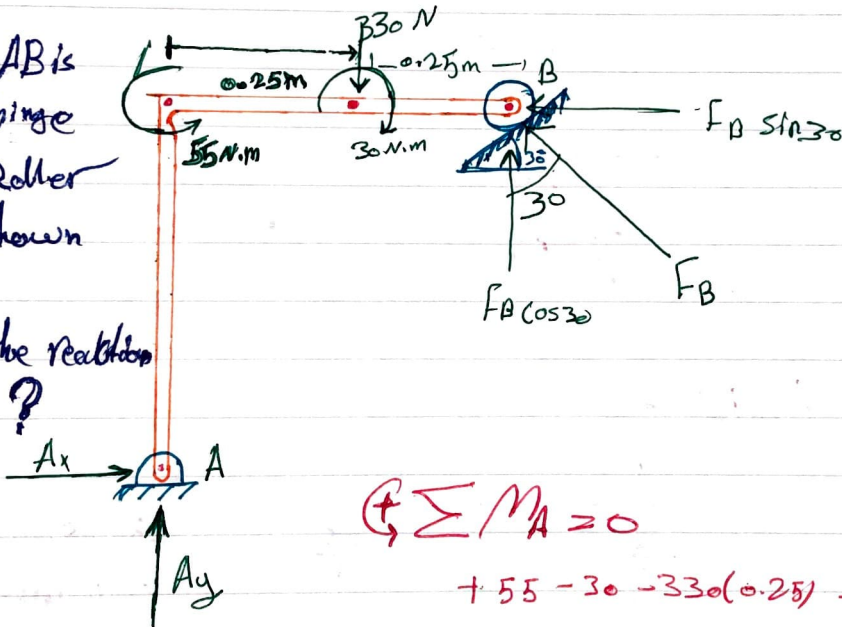 AB is
hinge
Roller
shown
the reaction
?
330 N
0.25m
0.25m
B
55 N.m
30 N.m
30
30
FB sin 30
FB cos 30
FB
Ax
A
Ay
+ ΣMA = 0
+ 55 - 30 - 330(0.25)